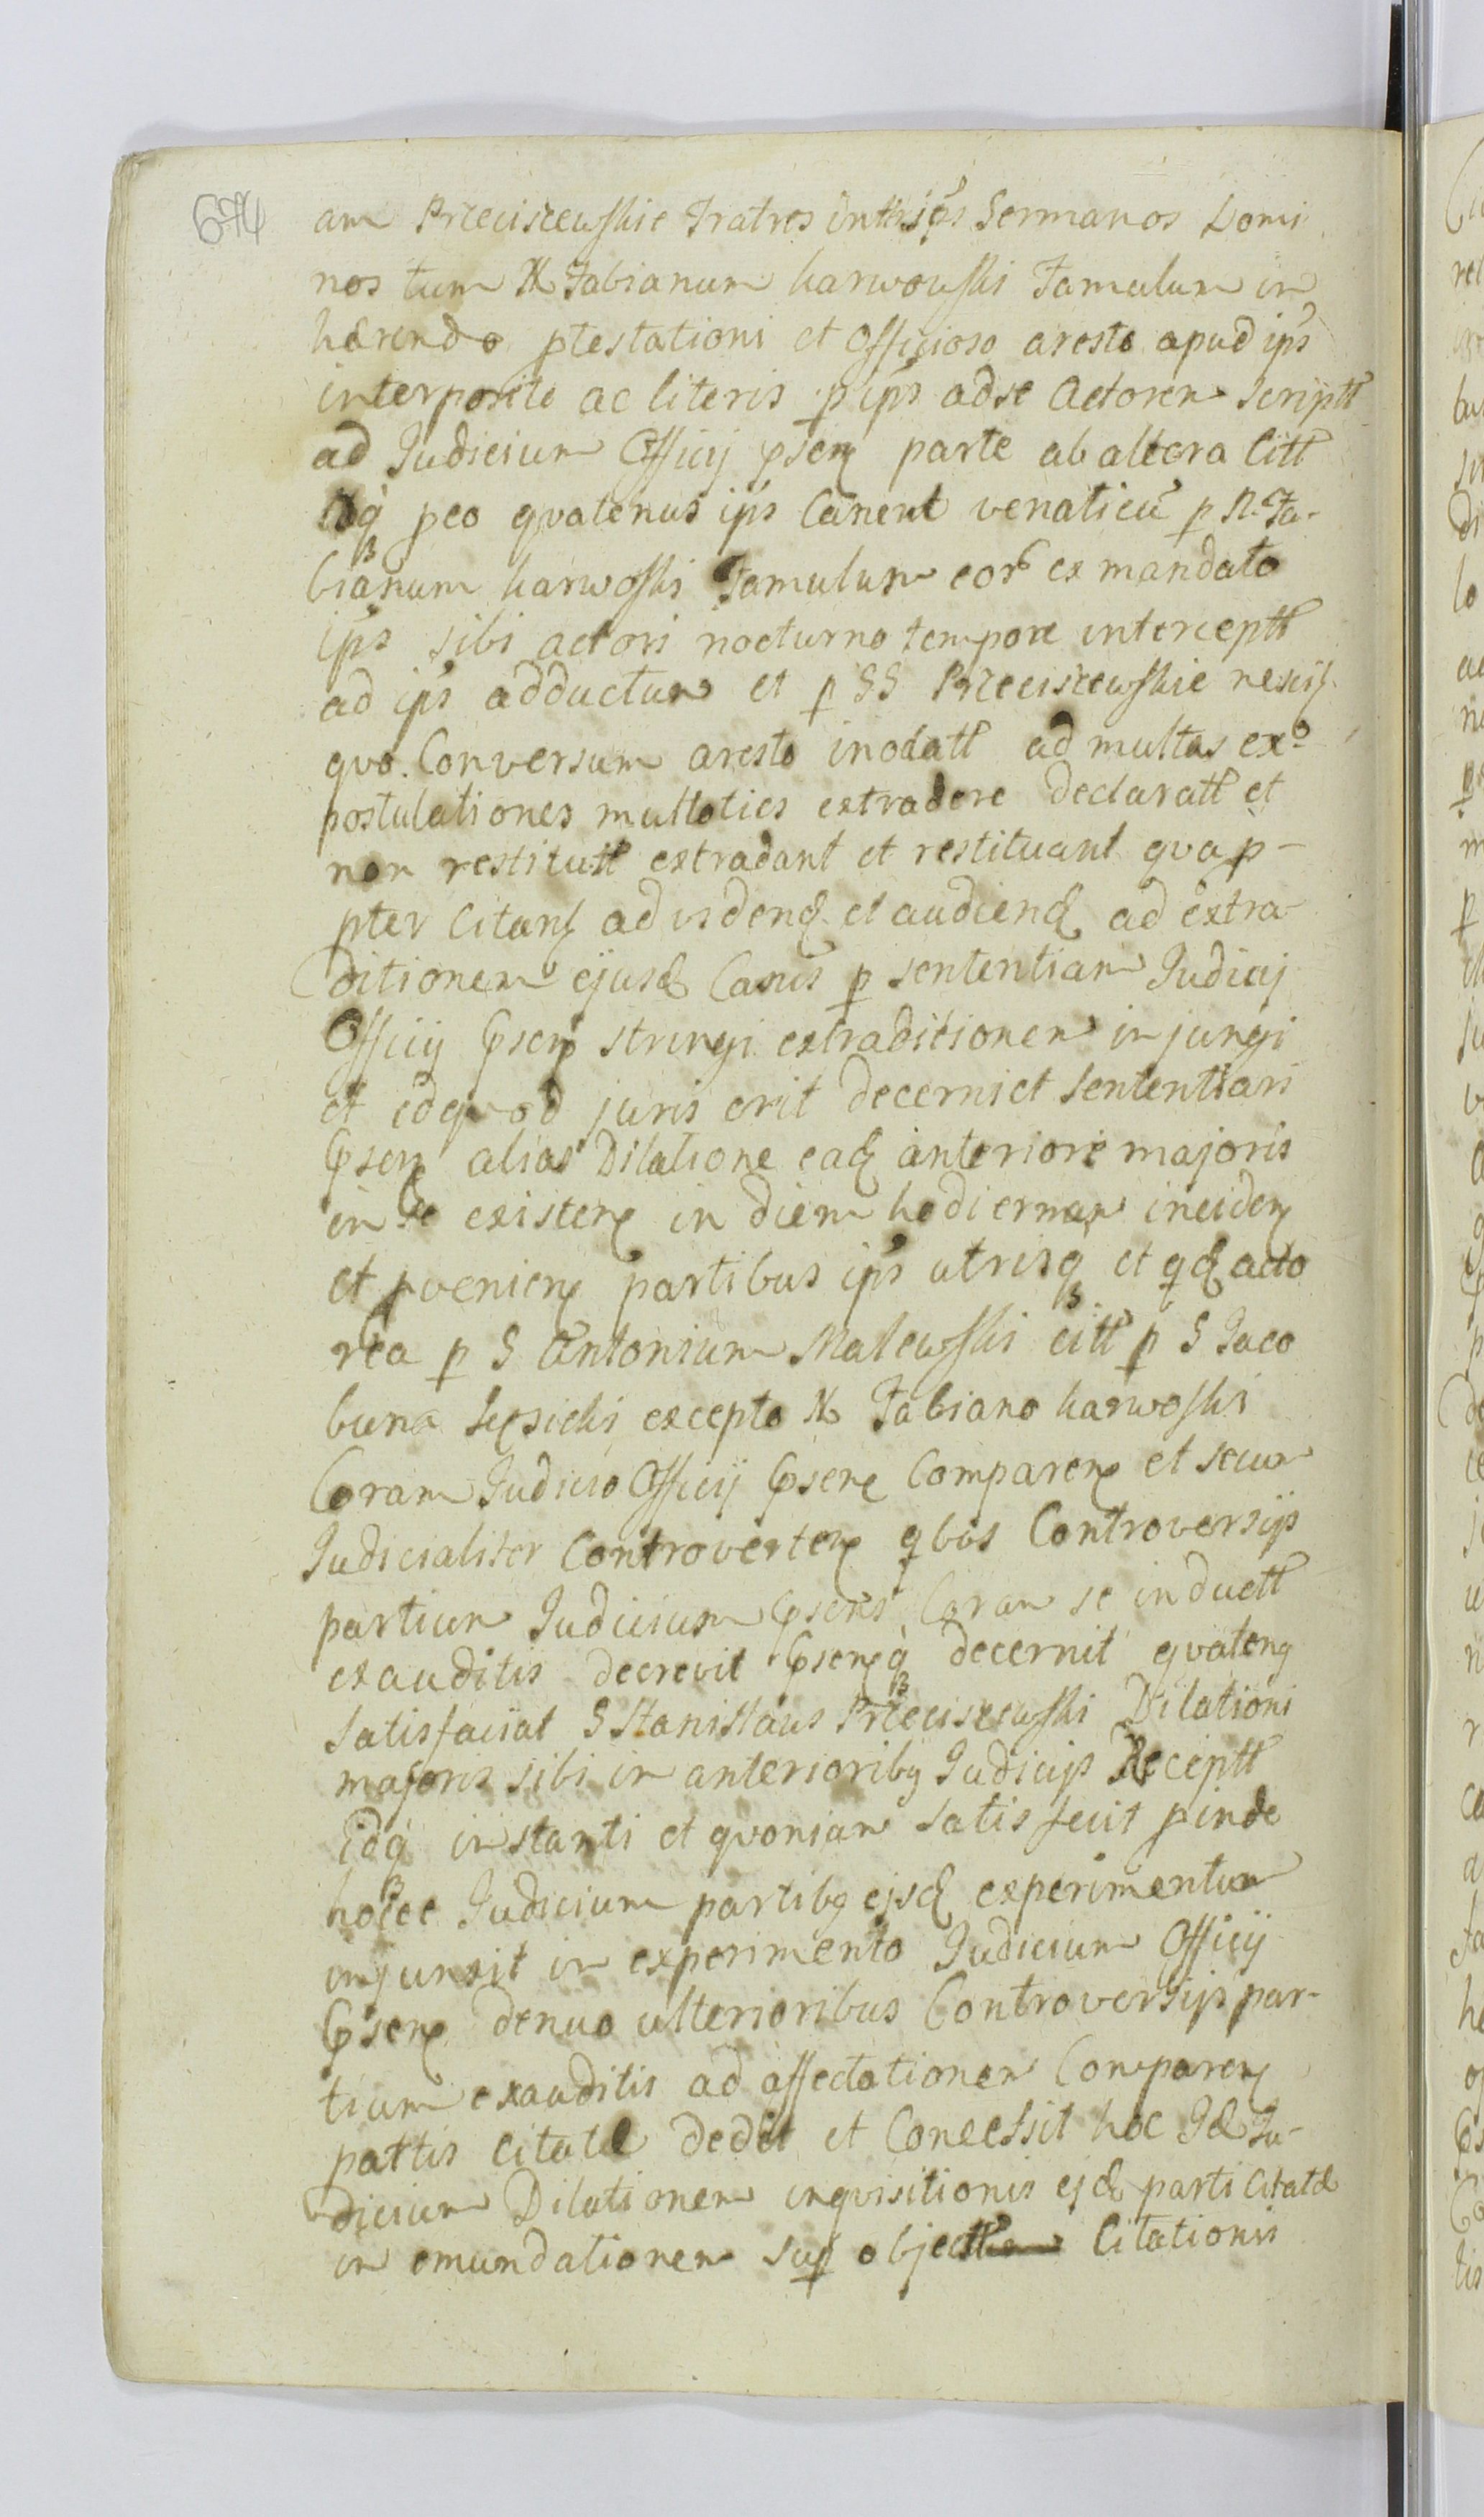 674
am Przeciszewskie Fratres int ips Germanos Domi
nos tum N Fabianum karwowski Famulum in
hærendo ptestationi et Officioso aresto apud ips
interposito ac literis p ips ad se Actorem scriptt
ad Judicium Officij psen parte ab altera Citt
Idq peo qvatenus ips Canem venaticũ p N. Fa-
bianum karwoski Famulum eor ex mandato
ips sibi actori nocturno tempore interceptt
ad ips adductum et p SS Przeciszewskie nescis
qvo. Conversum aresto inodatt ad multas ex
postulationes multoties extradere declaratt et
non restitutt extradant et restituant qva p-
pter Citans ad vidend et audiend ad extra-
ditionem ejusd Canis p sententiam Judicij
Officij psen stringi extraditionem injungi
et id qvod juris erit decerni et sententiari
psen alias Dilatione ead anteriore majoris
in se existen in diem hodiernam inciden
et pvenien partibus ips utrisq et qd acto
rea p G Antonium Malewski citt p G Jaco
bum excepto N Fabiano karwoski
Coram Judicio Officij psen Comparen et secum
Judicialiter Controverten qbus Controversijs
partium Judicium psens Coram se inductt
exauditis decrevit psenq decernit qvateng
satisfaciat G Stanislaus Przeciszewski Dilationi
majoris sibi in anterioribg Judicijs Receptt
idq instanti et qvoniam satisfecit pinde
hocce Judicium partibg ejsd experimentum
injunxit in experimento Judicium Officij
psen denuo ulterioribus Controversijs par-
tium exauditis ad affectationem Comparen
partis citatæ dedit et Concessit hoc Id Ju-
dicium Dilationem inqvisitionis ejd parti Citatæ
in emundationem sup objectt Citationis